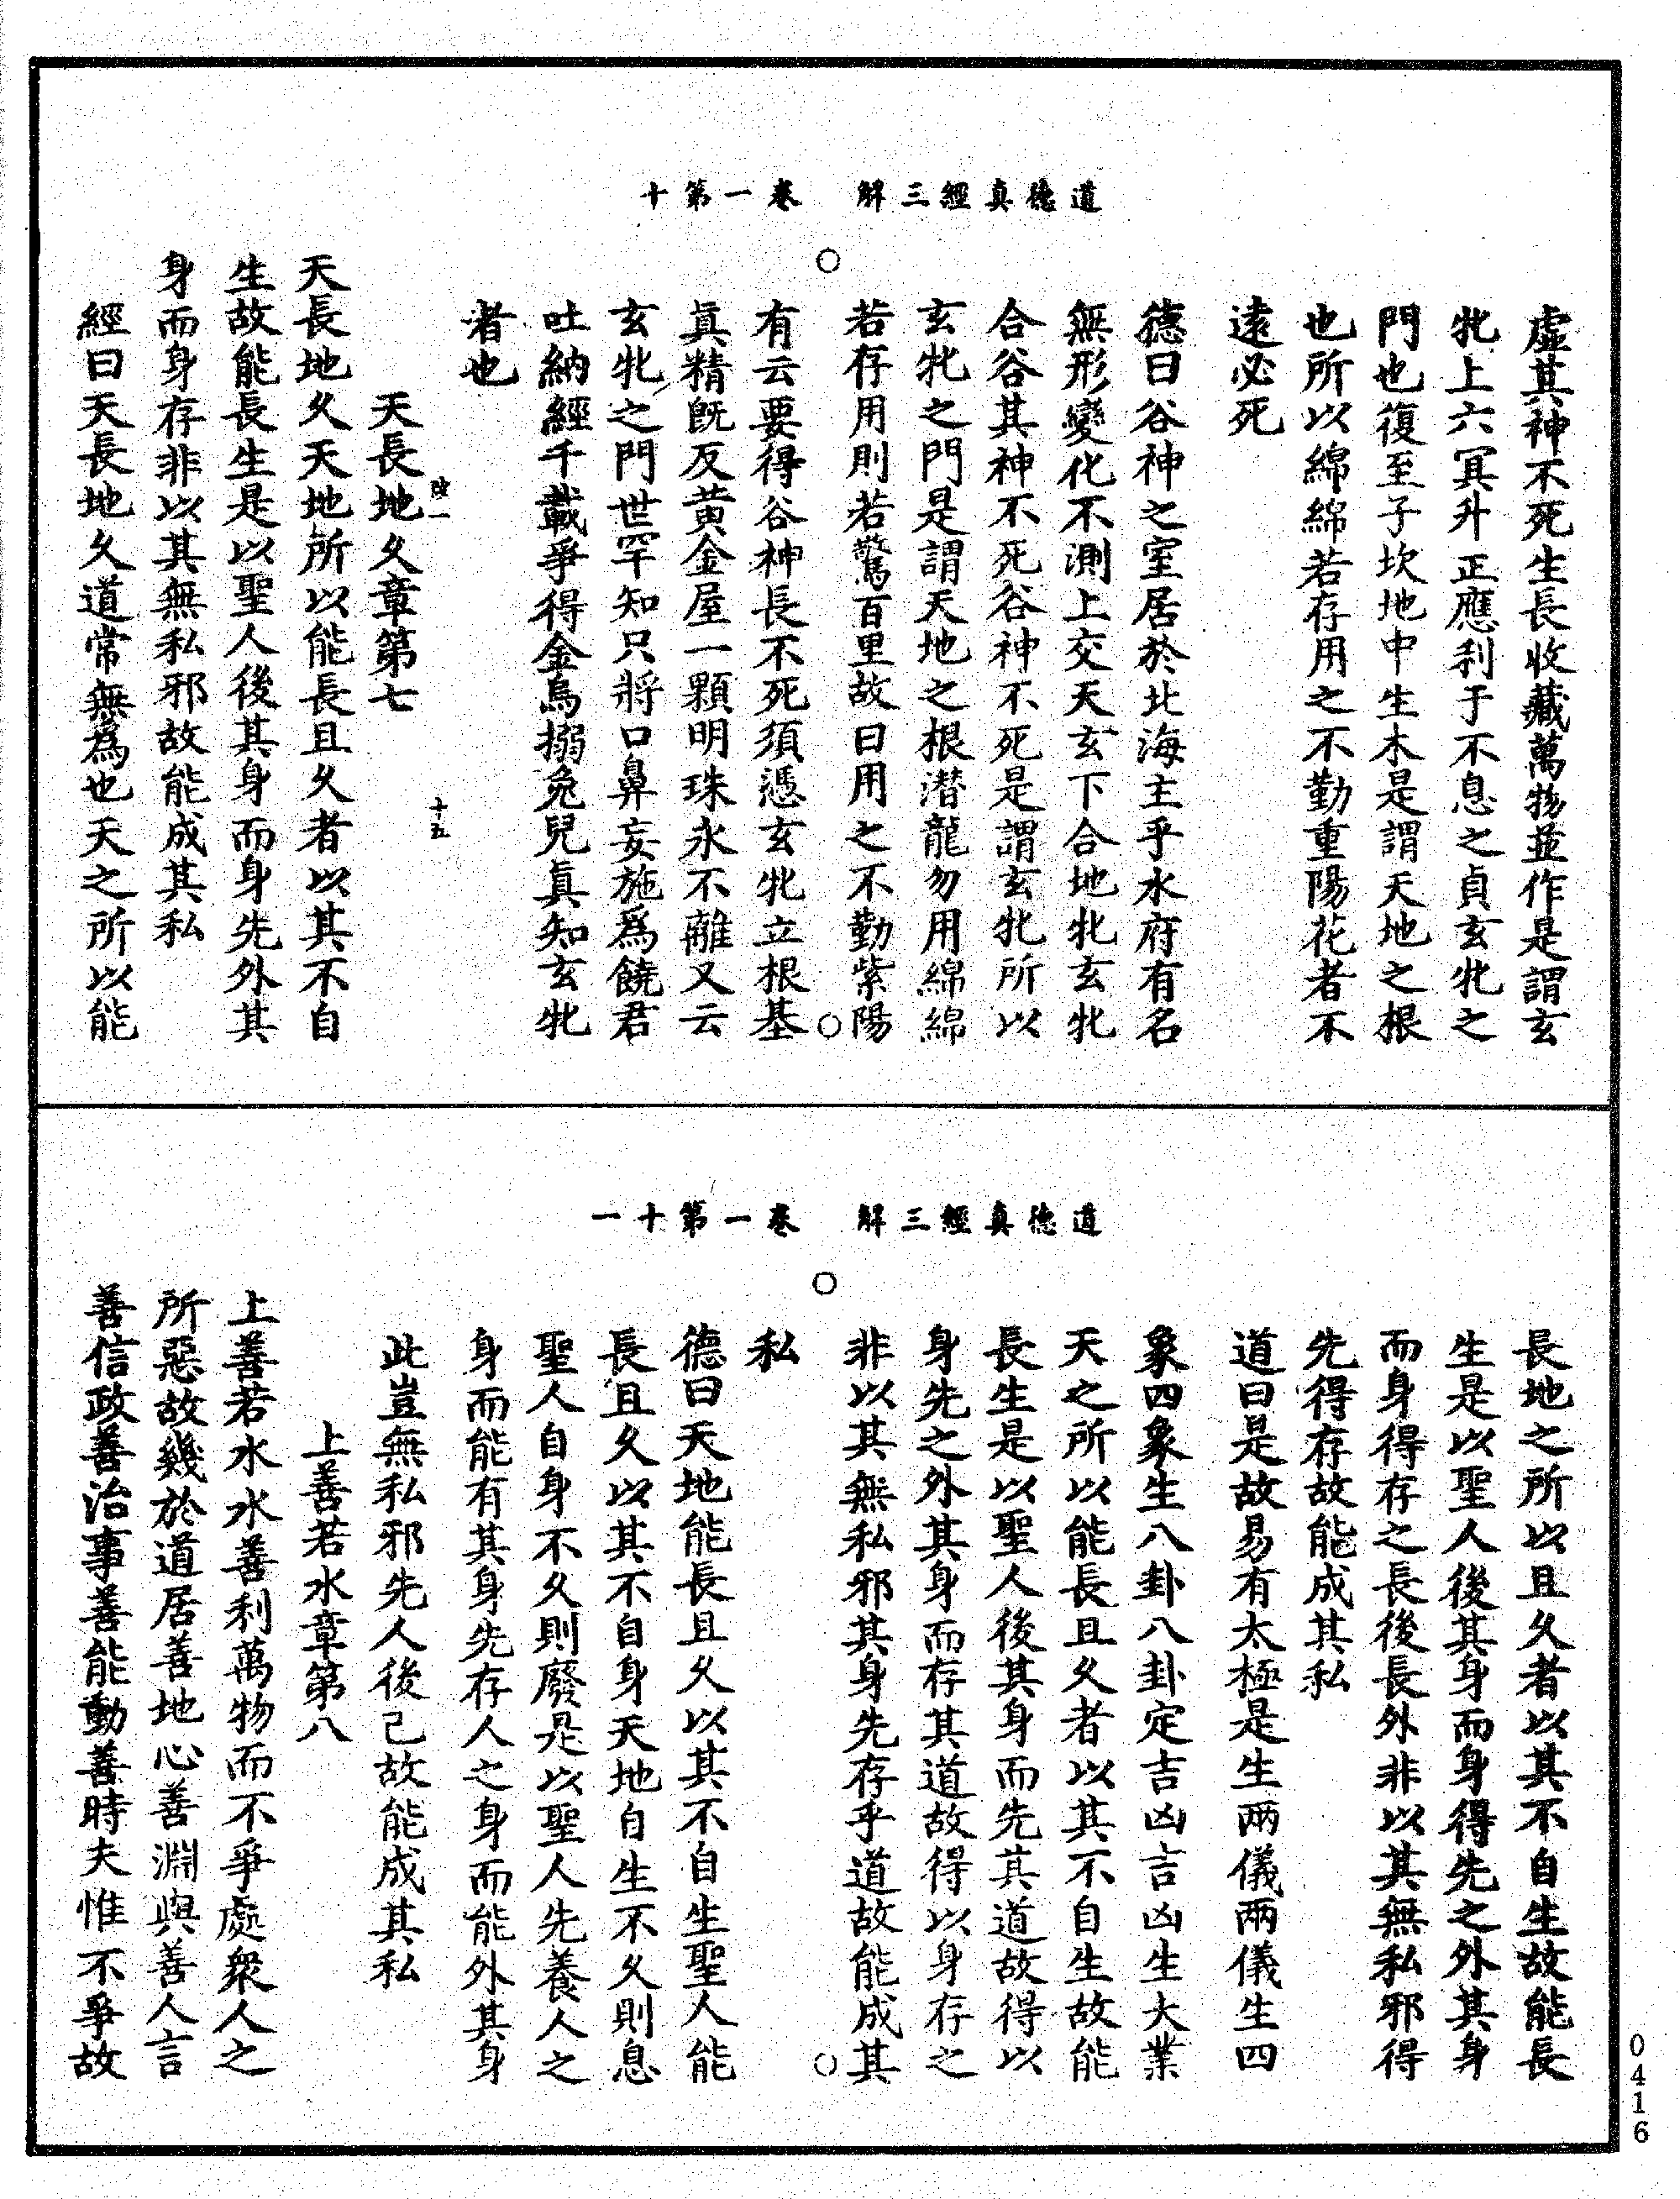 道德真經三解　卷一第十
虛其神不死生長收藏萬物並作是謂玄
牝上六冥升正應利于不息之貞玄牝之
門也復至子坎地中生木是謂天地之根
也所以綿綿若存用之不勤重陽花者不
遠必死
德曰谷神之室居於北海主乎水府有名
無形變化不測上交天玄下合地牝玄牝
合谷其神不死谷神不死是謂玄牝所以
玄牝之門是謂天地之根潜龍勿用綿綿
若存用則若驚百里故曰用之不勤紫陽
有云要得谷神長不死須憑玄牝立根基
真精旣反黄金屋一顆明珠永不離又云
玄牝之門世罕知只將口鼻妄施爲饒君
吐納經千載爭得金烏搦兔兒真知玄牝
者也
十五
天長地久章第七
天長地久天地所以能長且久者以其不自
生故能長生是以聖人後其身而身先外其
身而身存非以其無私邪故能成其私
經曰天長地久道常無爲也天之所以能
道德真經三解　卷一第十一
長地之所以且久者以其不自生故能長
生是以聖人後其身而身得先之外其身
而身得存之長後長外非以其無私邪得
先得存故能成其私
道曰是故易有太極是生两儀兩儀生四
象四象生八卦八卦定吉凶吉凶生大業
天之所以能長且久者以其不自生故能
長生是以聖人後其身而先其道故得以
身先之外其身而存其道故得以身存之
非以其無私邪其身先存乎道故能成其
私
德曰天地能長且久以其不自生聖人能
長且久以其不自身天地自生不久則息
聖人自身不久則廢是以聖人先養人之
身而能有其身先存人之身而能外其身
此豈無私邪先人後己故能成其私
上善若水章第八
上善若水水善利萬物而不爭處衆人之
所惡故幾於道居善地心善淵與善人言
善信政善治事善能動善時夫惟不爭故
0416